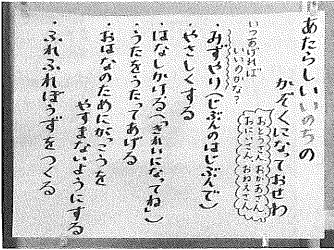 あたらしいいのちの
かぞくになっておせわ
おとうさん おかあさん
おにいさん おねえさん
いつあげれば
いいのかな?
・みずやり(じぶんのはじぶんで)
・やさしくする
・はなしかける(「きれいになってね」)
・うたをうたってあげる
・おはなのためにがっこうを
やすまないようにする
・ふれふれぼうずをつくる